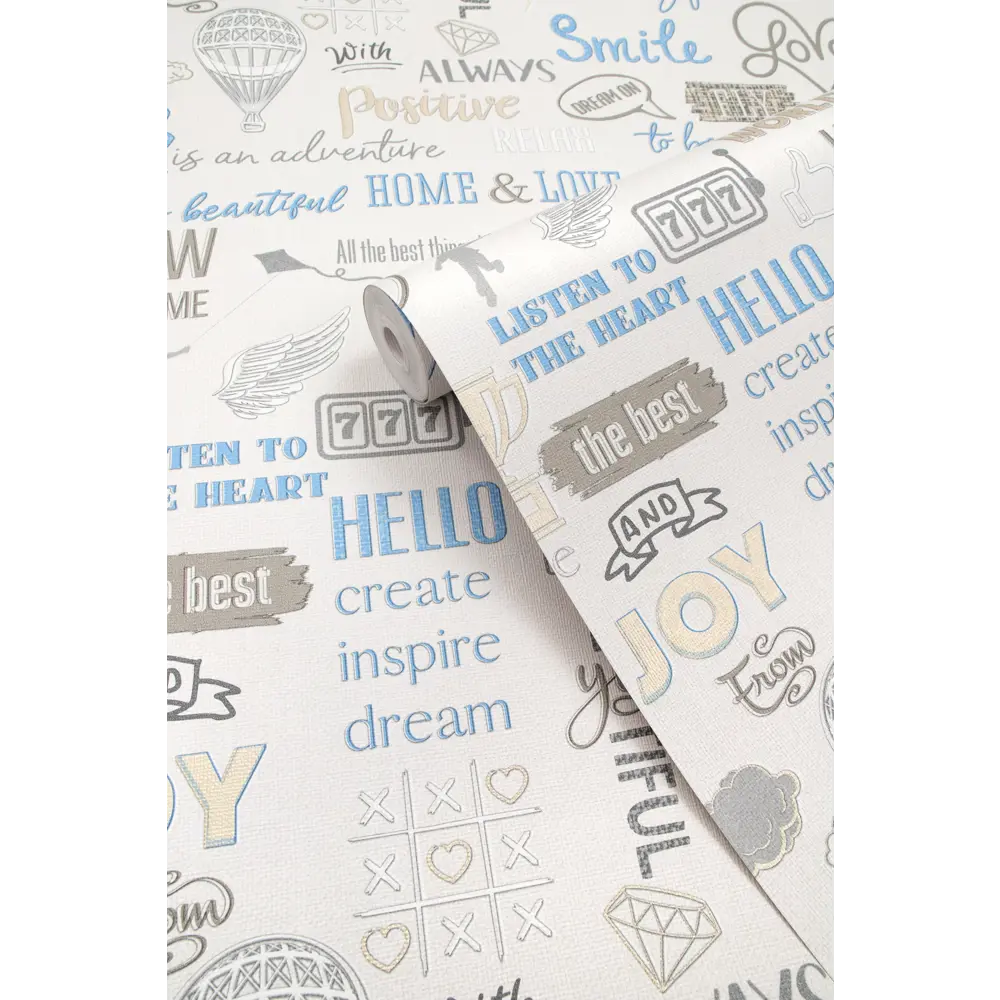 Smile
Love
With
ALWAYS
Positive
DREAM ON
is an adventure
RELAX
to b
WORL
beautiful
HOME & LOVE
W
ME
All the best thin
777
LISTEN TO
THE HEART
HELLO
create
inspi
dr
the best
AND
JOY
From
777
TEN TO
E HEART
HELLO
create
inspire
dream
e best
D
OY
om
you
TIFUL
With
WAYS